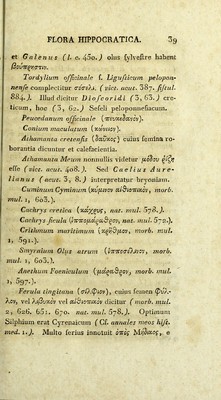 FLORA HIPPOCRATICA. 39
et Galenus (l. c. 430.) olus sylvestre habent
βούπρηστιν.
Tordylium officinale f. Ligusticum pelopon-
nense complectitur σέσελι. (vicc. acut. 387. fistul.
884.). Illud dicitur Dioscoridi (3, 63.) cre-
ticum, hoc (3, 60.) Seseli peloponnesiacum.
Peucedanum officinale (πευκεδανόν).
Conium maculatum (κώνειον).
Athamanta cretensis (δαῦκος) cuius semina ro-
borantia dicuntur et calefacientia.
Athamanta Meum nonnullis videtur μέθου ῥίζα
esse (vicc. acut. 408.). Sed Caelius Aure-
lianus (acut. 3, 8.) interpretatur bryoniam.
Cuminum Cyminum (κύμινον αἰθιοπικόν, morb.
mul. 1, 603.).
Cachrys cretica (κάχρυς, nat. mul. 578.).
Cachrys sicula (ἱππομάραθρον, nat. mul. 572.).
Crithmum maritimum (κρῆθμον, morb. mul.
1, 591.).
Smyrnium Olus atrum (ἱπποσέλινον, morb.
mul. 1, 603.).
Anethum Foeniculum (μάραθρον, morb. mul.
1, 597.).
Ferula tingitana (σίλφιον), cuius semen φύλ-
λον, vel λιβυκόν vel αἰθιοπικόν dicitur (morb. mul.
2, 626. 651. 670. nat. mul. 578.). Optimum
Silphium erat Cyrenaicum (Cf. annales meos hist.
med. 1.). Multo serius innotuit ὀπὸς Μήδικος, e